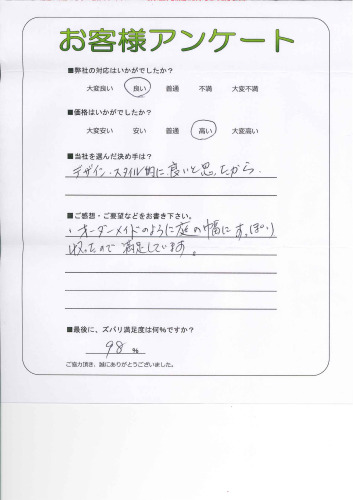 お客様アンケート
■弊社の対応はいかがでしたか？
大変良い 良い 普通 不満 大変不満
■価格はいかがでしたか？
大変安い 安い 普通 高い 大変高い
■当社を選んだ決め手は？
デザイン・スタイル的に良いと思ったから
■ご感想・ご要望などをお書き下さい。
・オーダーメイドのように庭の幅にすっぽり
収ったので満足しています。
■最後に、ズバリ満足度は何%ですか？
98 %
ご協力頂き、誠にありがとうございました。